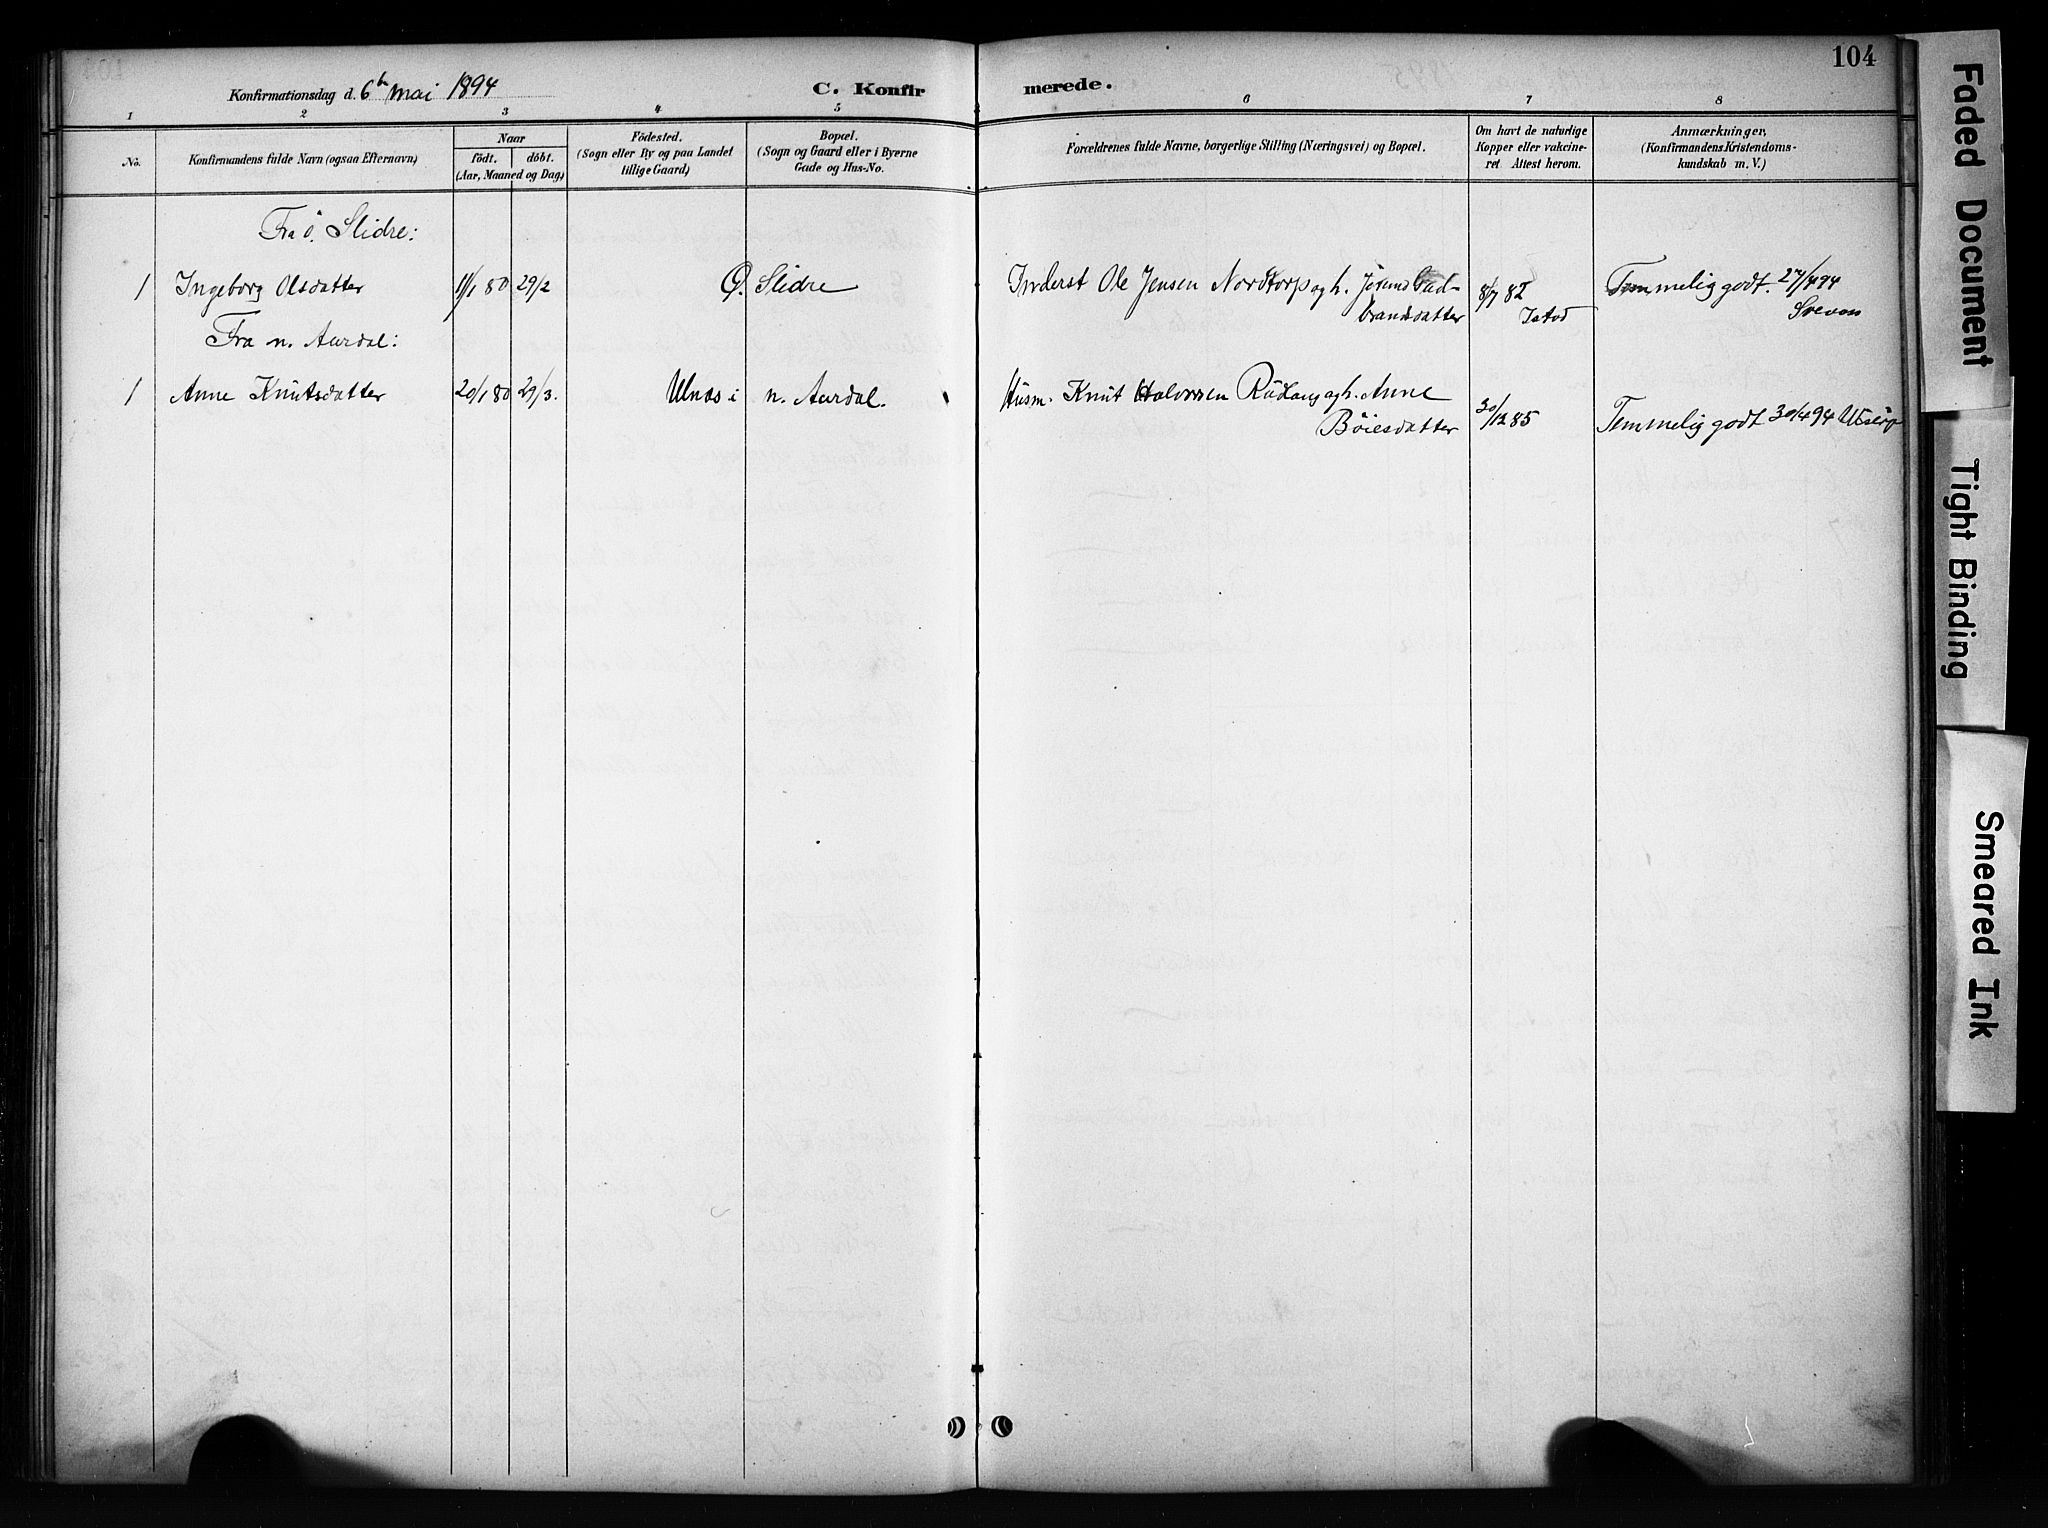 104
Konfirmationsdag d. 6te Mai 1894
C. Konfirmerede.
1 2 3 4 5 6 7 8
No.
Konfirmandens fulde Navn (ogsaa Efternavn)
Naar
født. døbt.
(Aar, Maaned og Dag)
Fødested.
(Sogn eller By og paa Landet
tillige Gaard)
Bopæl.
(Sogn og Gaard eller i Byerne
Gade og Hus-No.
Forældrenes fulde Navne, borgerlige Stilling (Næringsvei) og Bopæl.
Om havt de naturlige
Kopper eller vakcine-
ret Attest herom.
Anmærkninger,
(Konfirmandens Kristendoms-
kundskab m. V.)
Fra Ö. Slidre:
1 Ingeborg Olsdatter 11/1 80 29/2 Ø. Slidre Inderst Ole Jensen Nordtorp og h. Jörund Gud-
brandsdatter 8/7 82 Temmelig godt. 27/4 94
Fra n. Aurdal:
1 Anne Knutsdatter 20/1 80 29/3. Ulnæs i n. Aurdal. Husm. Knut Halvorsen og h. Anne
Böiesdatter 30/12 85 Temmelig godt 30/4 94
Faded Document
Tight Binding
Smeared Ink